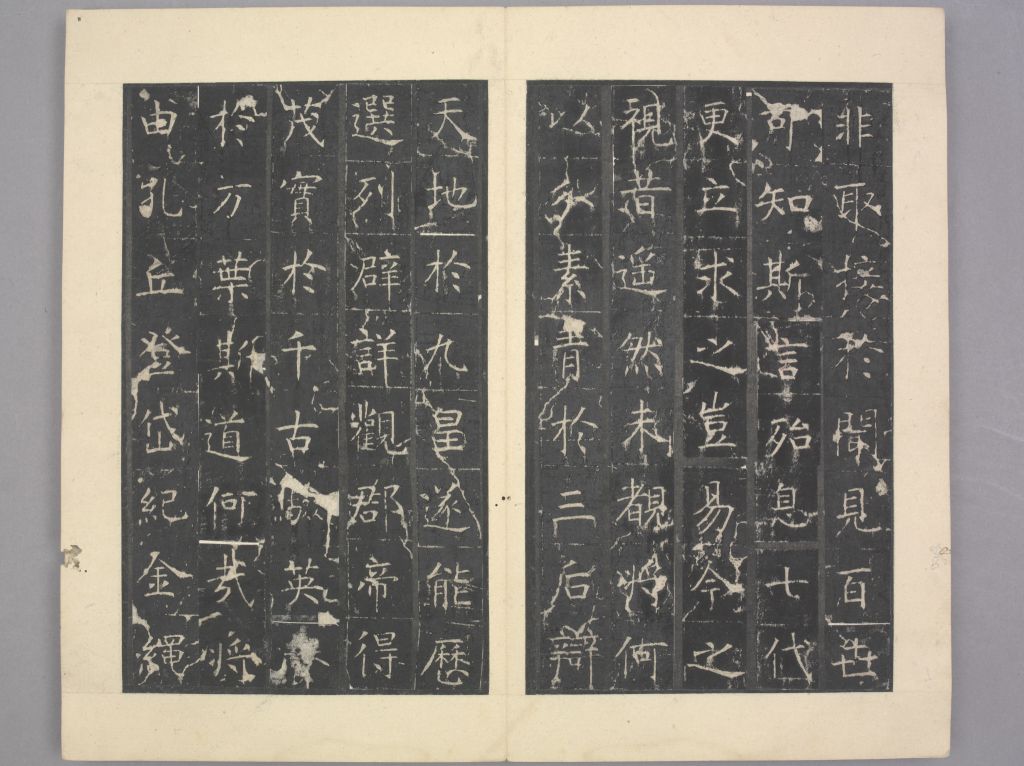 非取接於聞見百世
可知斯言殆息七代
更立求之豈易今之
視昔遥然未覩將何
以素青於三后辯
天地於九皇遂能歷
選列辟詳觀郡帝得
茂實於千古英
於方葉斯道何哉將
由孔丘登岱紀金繩